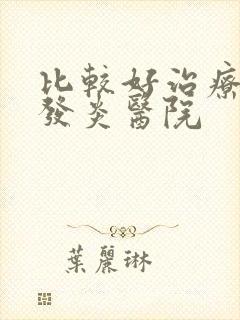 比較好治療
發炎醫院
葉麗琳